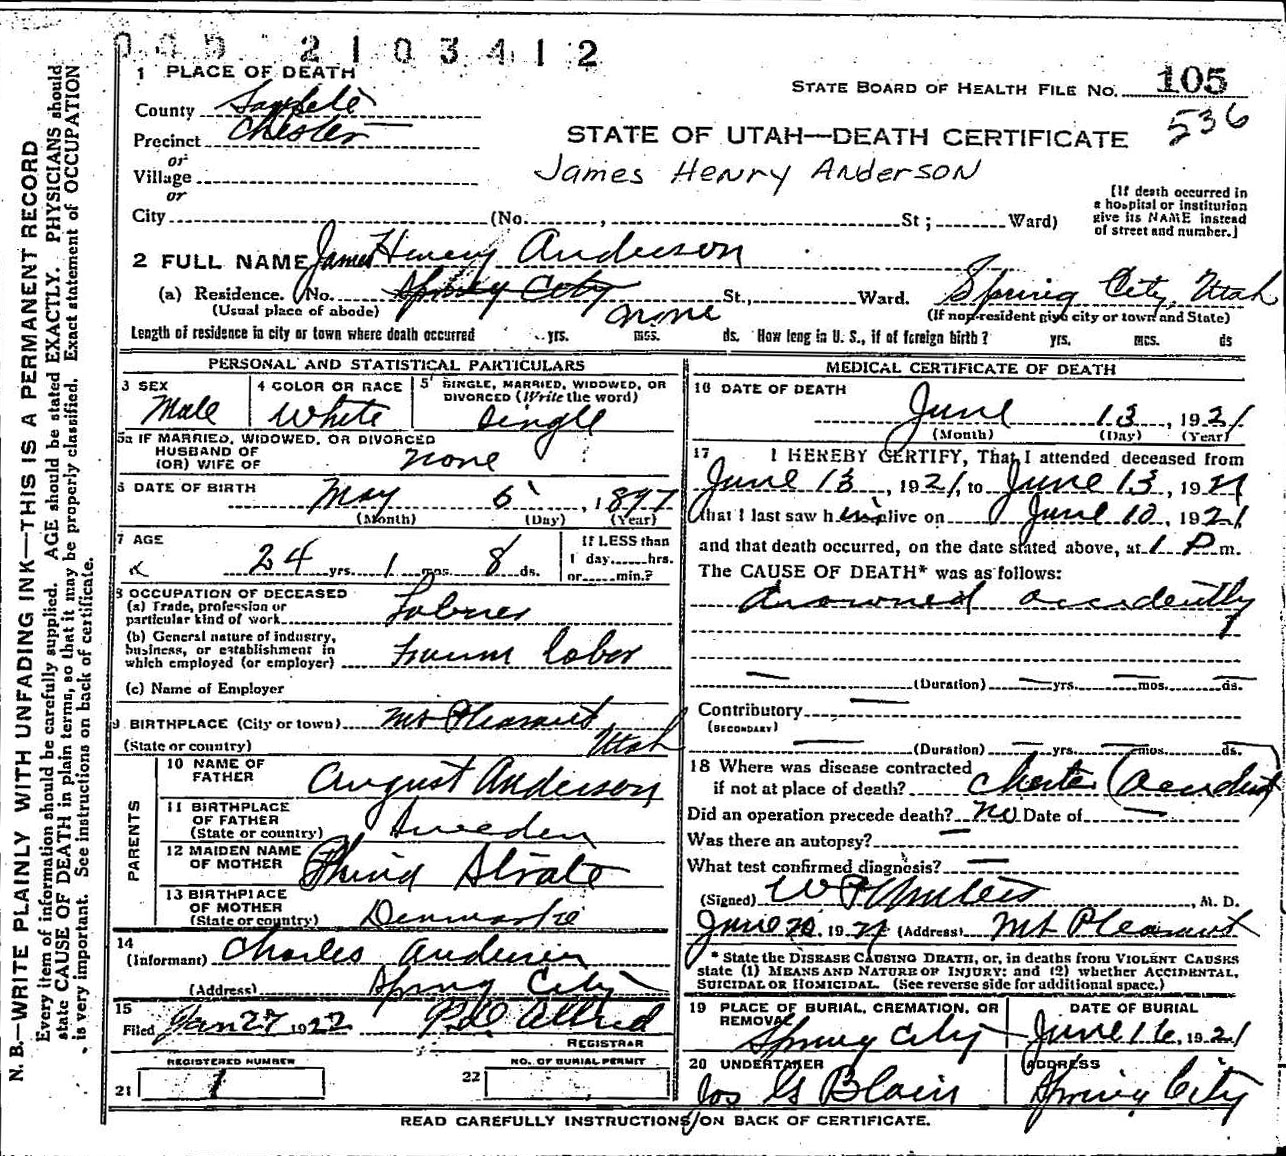 005 2103412
1 PLACE OF DEATH
STATE BOARD OF HEALTH FILE NO. 105
536
County Sanpete
Precinct Chester
or
Village
or
STATE OF UTAH—DEATH CERTIFICATE
James Henry Anderson
[If death occurred in
a hospital or institution
give its NAME instead
of street and number.]
City (No. , St ; Ward)
2 FULL NAME James Henry Anderson
(a) Residence. No. Spring City St., Ward. Spring City, Utah
(Usual place of abode) none (If non-resident give city or town and State)
Length of residence in city or town where death occurred yrs. mos. ds. How long in U. S., if of foreign birth? yrs. mos. ds
PERSONAL AND STATISTICAL PARTICULARS
3 SEX
Male
4 COLOR OR RACE
White
5 SINGLE, MARRIED, WIDOWED, OR
DIVORCED (Write the word)
Single
5a IF MARRIED, WIDOWED, OR DIVORCED
HUSBAND OF
(OR) WIFE OF none
6 DATE OF BIRTH May 6, 1897
(Month) (Day) (Year)
7 AGE
24 yrs. 1 mos. 8 ds.
If LESS than
1 day......hrs.
or......min.?
8 OCCUPATION OF DECEASED
(a) Trade, profession or
particular kind of work Laborer
(b) General nature of industry,
business, or establishment in
which employed (or employer) Farm labor
(c) Name of Employer
9 BIRTHPLACE (City or town) Mt Pleasant
(State or country) Utah
PARENTS
10 NAME OF
FATHER August Anderson
11 BIRTHPLACE
OF FATHER
(State or country) Sweden
12 MAIDEN NAME
OF MOTHER Strate
13 BIRTHPLACE
OF MOTHER
(State or country) Denmark
14
(Informant) Charles Andersen
(Address) Spring City
15
Filed Jan 27 1922 Allred
REGISTRAR
REGISTERED NUMBER
21 1
NO. OF BURIAL PERMIT
22
MEDICAL CERTIFICATE OF DEATH
16 DATE OF DEATH
June 13, 1921
(Month) (Day) (Year)
17 I HEREBY CERTIFY, That I attended deceased from
June 13, 1921, to June 13, 1921
that I last saw him alive on June 10, 1921
and that death occurred, on the date stated above, at 1 P m.
The CAUSE OF DEATH* was as follows:
drowned accidently
(Duration) yrs. mos. ds.
Contributory
(SECONDARY)
(Duration) yrs. mos. ds.
18 Where was disease contracted
if not at place of death? Chester (Accident)
Did an operation precede death? no Date of
Was there an autopsy?
What test confirmed diagnosis?
(Signed) W P Winters, M. D.
June 20, 1921 (Address) Mt Pleasant
* State the DISEASE CAUSING DEATH, or, in deaths from VIOLENT CAUSES
state (1) MEANS AND NATURE OF INJURY; and (2) whether ACCIDENTAL,
SUICIDAL OR HOMICIDAL. (See reverse side for additional space.)
19 PLACE OF BURIAL, CREMATION, OR
REMOVAL
Spring City
DATE OF BURIAL
June 16, 1921
20 UNDERTAKER
Jos G Blain
ADDRESS
Spring City
READ CAREFULLY INSTRUCTIONS ON BACK OF CERTIFICATE.
N. B.—WRITE PLAINLY WITH UNFADING INK—THIS IS A PERMANENT RECORD
Every item of information should be carefully supplied. AGE should be stated EXACTLY. PHYSICIANS should
state CAUSE OF DEATH in plain terms, so that it may be properly classified. Exact statement of OCCUPATION
is very important. See instructions on back of certificate.